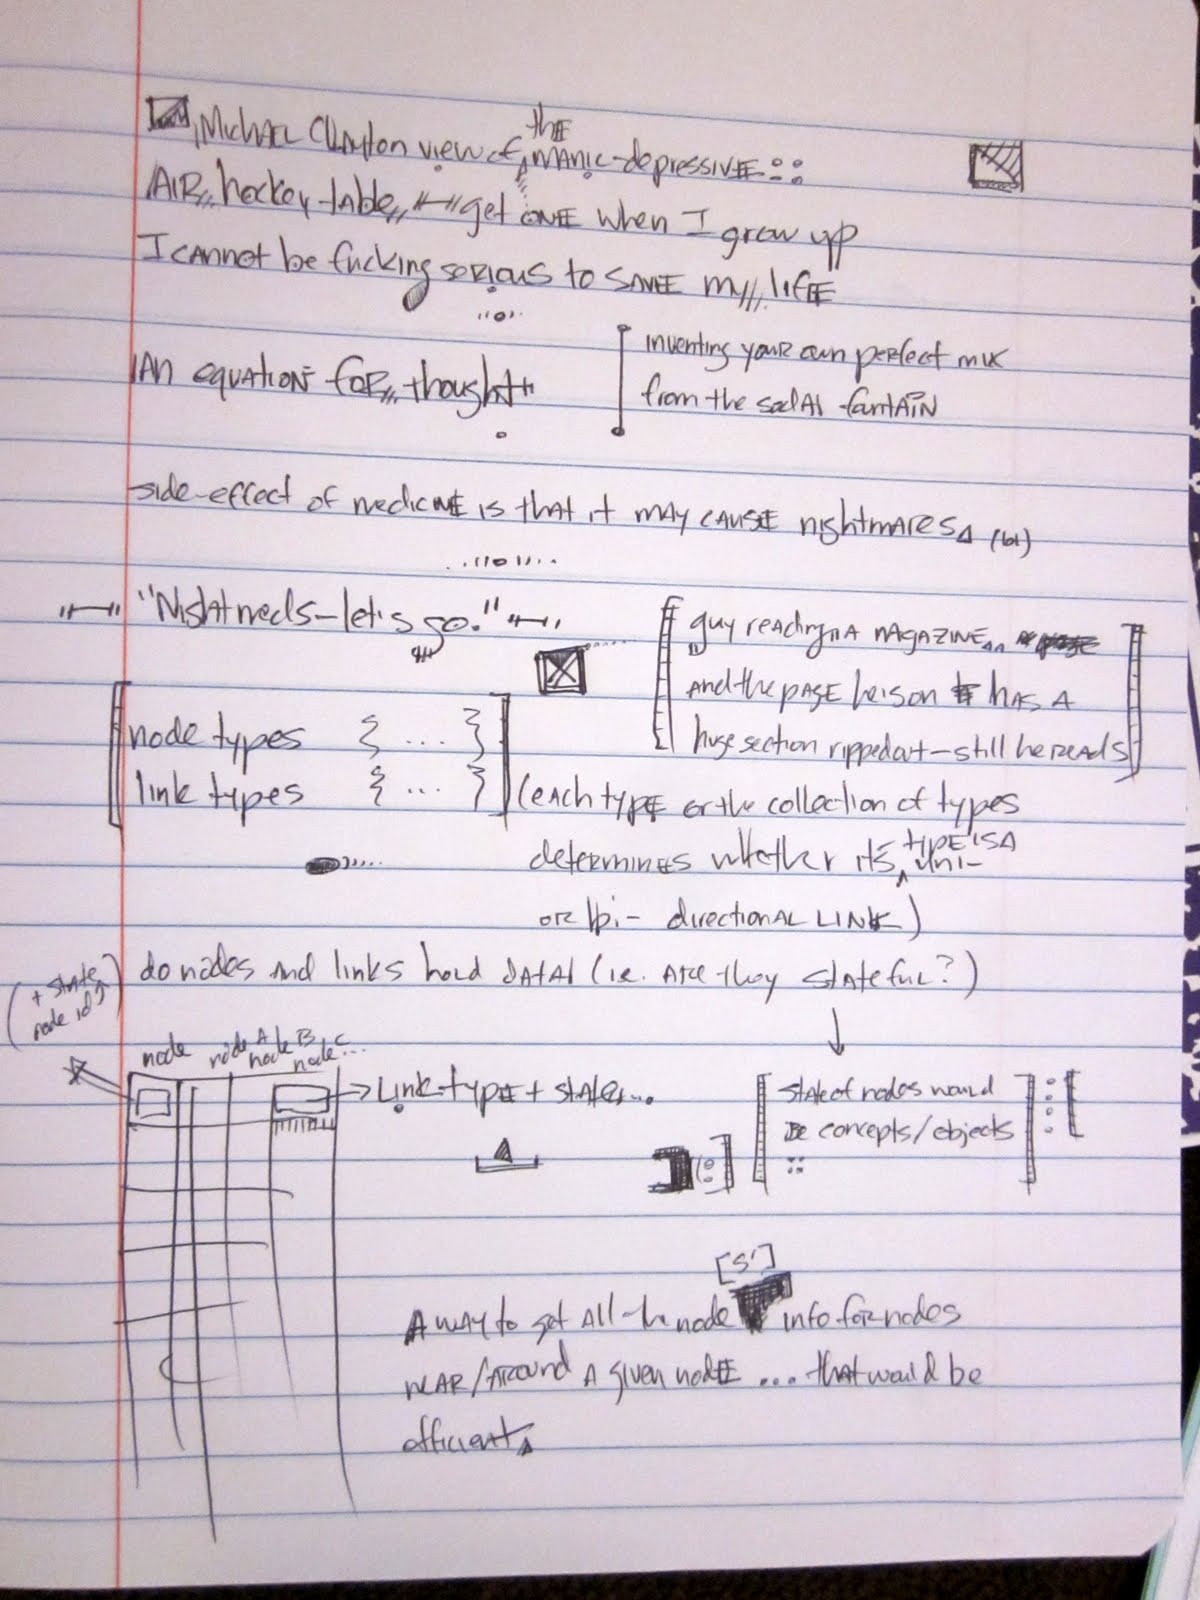 Michael Clayton view of the manic-depressive::
Air hockey table get one when I grow up
I cannot be fucking serious to save my life
An equation for thought
inventing your own perfect mix
from the social fountain
side-effect of medicine is that it may cause nightmares
"Night meds - let's go."
guy reading a magazine
and the page he is on has a
huge section ripped out - still he reads
node types { ... }
link types { ... }
(each type or the collection of types
determines whether its type is a uni-
or bi- directional link)
do nodes and links hold data (i.e. are they stateful?)
(+ state
node id)
node node A node B node C...
Link-type + state...
state of nodes would
be concepts/objects
[S']
A way to get all the node info for nodes
near/around a given node ... that would be
efficient